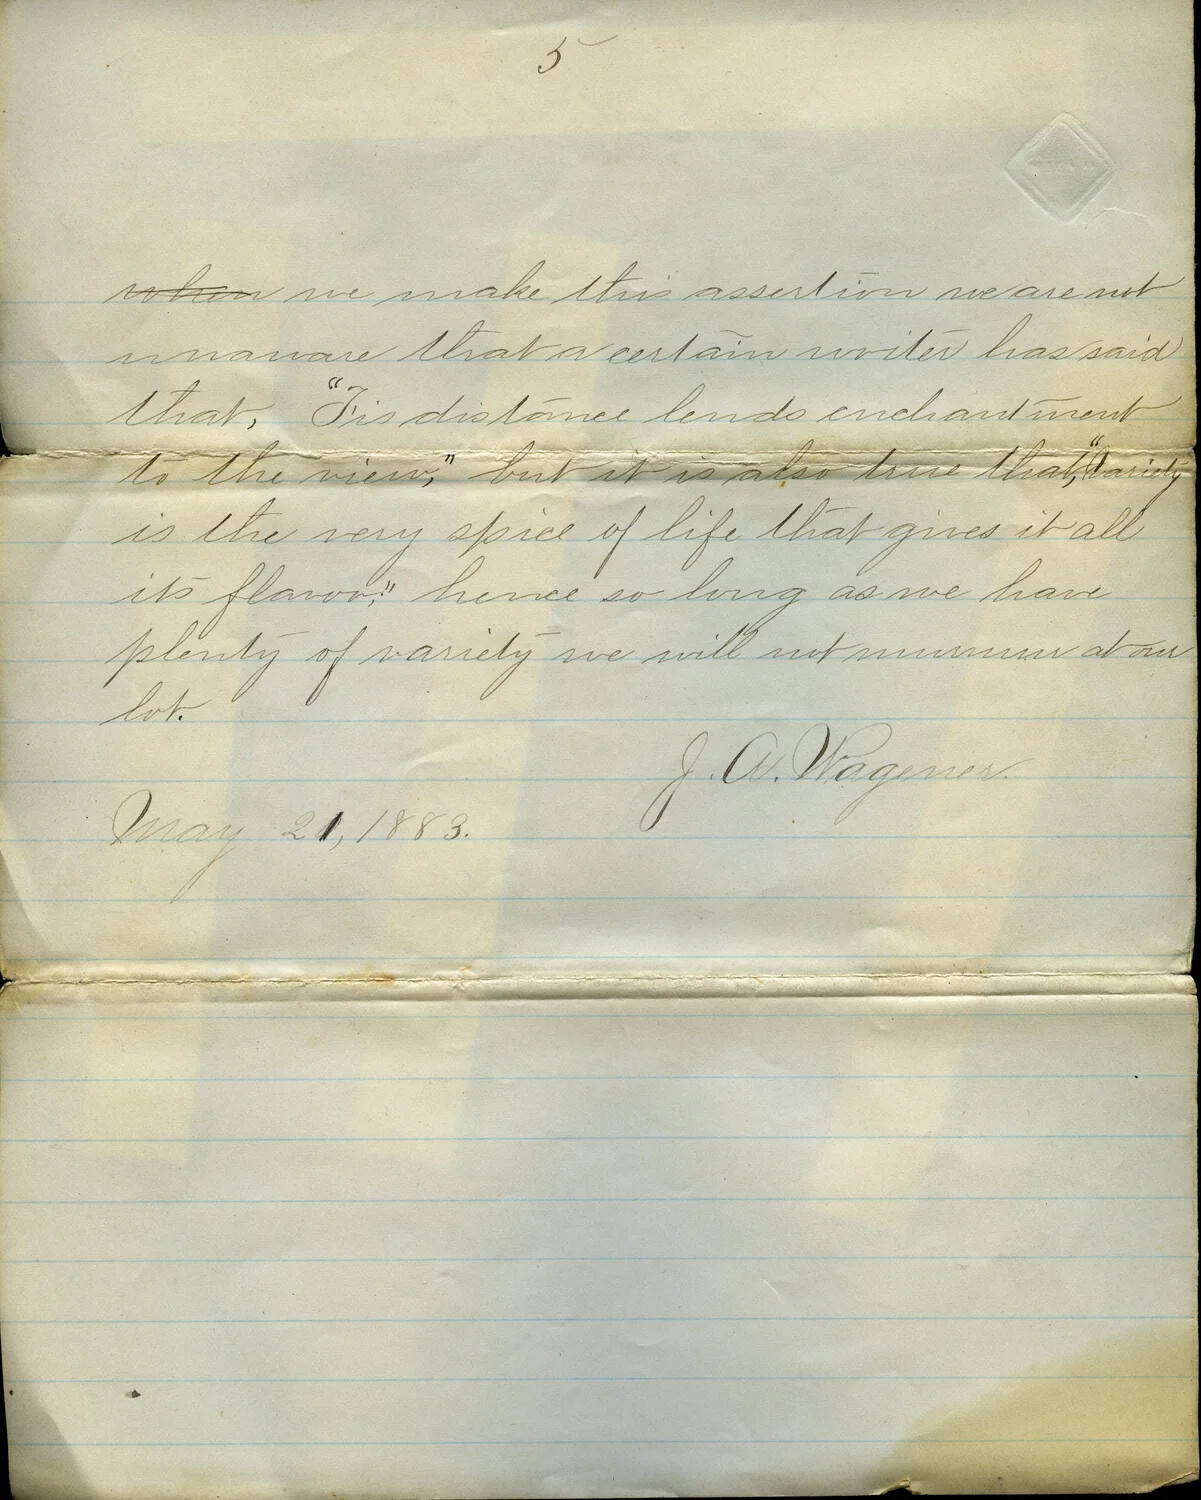 5
when we make this assertion we are not
unaware that a certain writer has said
that, "Tis distance lends enchantment
to the view," but it is also true that, "Variety
is the very spice of life that gives it all
its flavor;" hence so long as we have
plenty of variety we will not murmur at our
lot.
J. A. Wagener.
May 21, 1883.